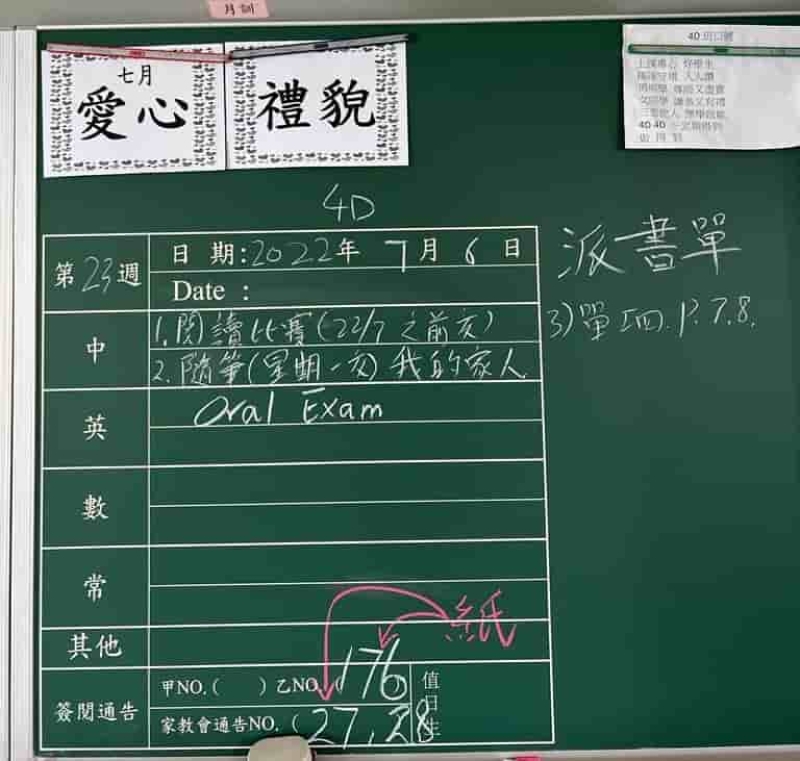 月訓
七月
愛心
禮貌
4D 班口號
4D
第23週
日 期:2022年 7月 6 日
Date :
中
1. 閱讀比賽(22/7 之前交)
2. 隨筆(星期一交) 我的家人
英
Oral Exam
數
常
其他
紙
簽閱通告
甲NO.( ) 乙NO.(176)
家教會通告NO. (27, 28
值日生
派書單
3) 單四. P.7.8.